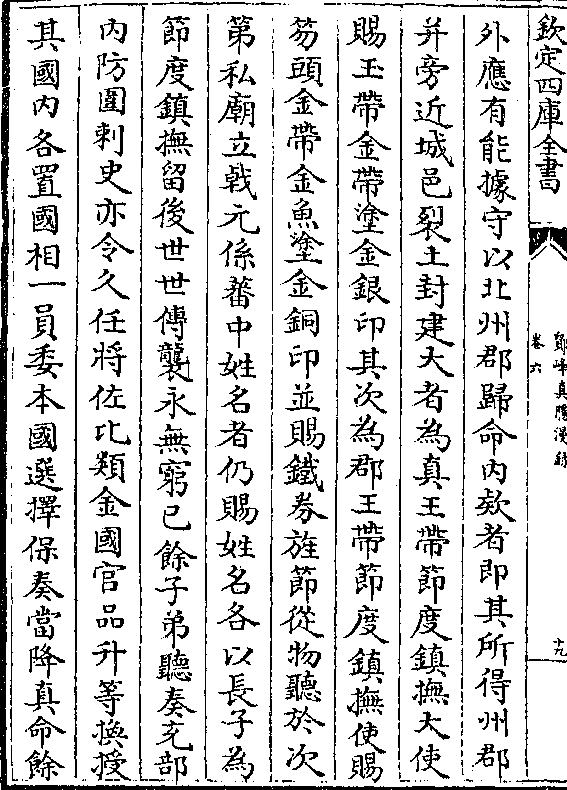 欽定四庫全書
鄮峰真隱漫錄
卷六
十九
外應有能據守以北州郡歸命內欵者即其所得州郡
并旁近城邑裂土封建大者為真王帶節度鎮撫大使
賜玉帶金帶塗金銀印其次為郡王帶節度鎮撫使賜
笏頭金帶金魚塗金銅印並賜鐵券旌節從物聽於次
第私廟立戟元係蕃中姓名者仍賜姓名各以長子為
節度鎮撫留後世世傳襲永無窮已餘子弟聽奏充部
內防圍刺史亦令久任將佐比類金國官品升等換授
其國內各置國相一員委本國選擇保奏當降真命餘